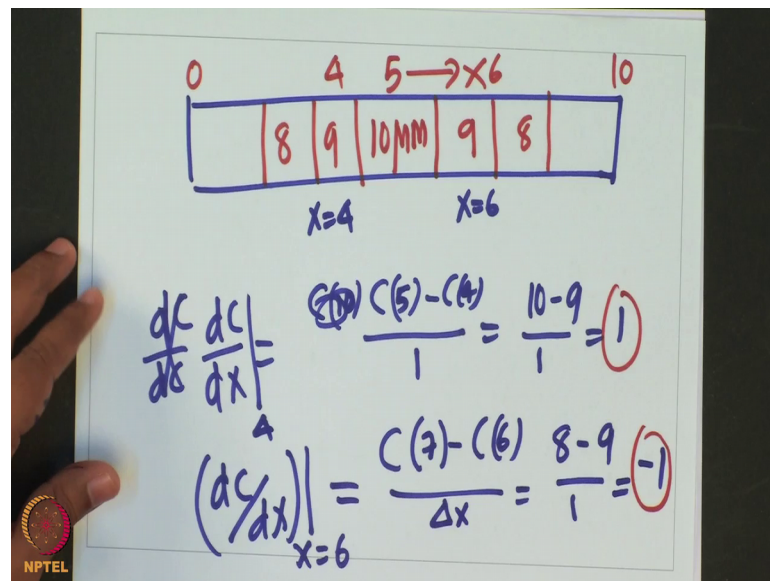 0 4 5 → x6 10
8 9 10 mM 9 8
x=4 x=6
dC/dx dC/dx|4 = C(5)-C(4)/1 = 10-9/1 = 1
(dC/dx)|x=6 = C(7)-C(6)/Δx = 8-9/1 = -1
NPTEL